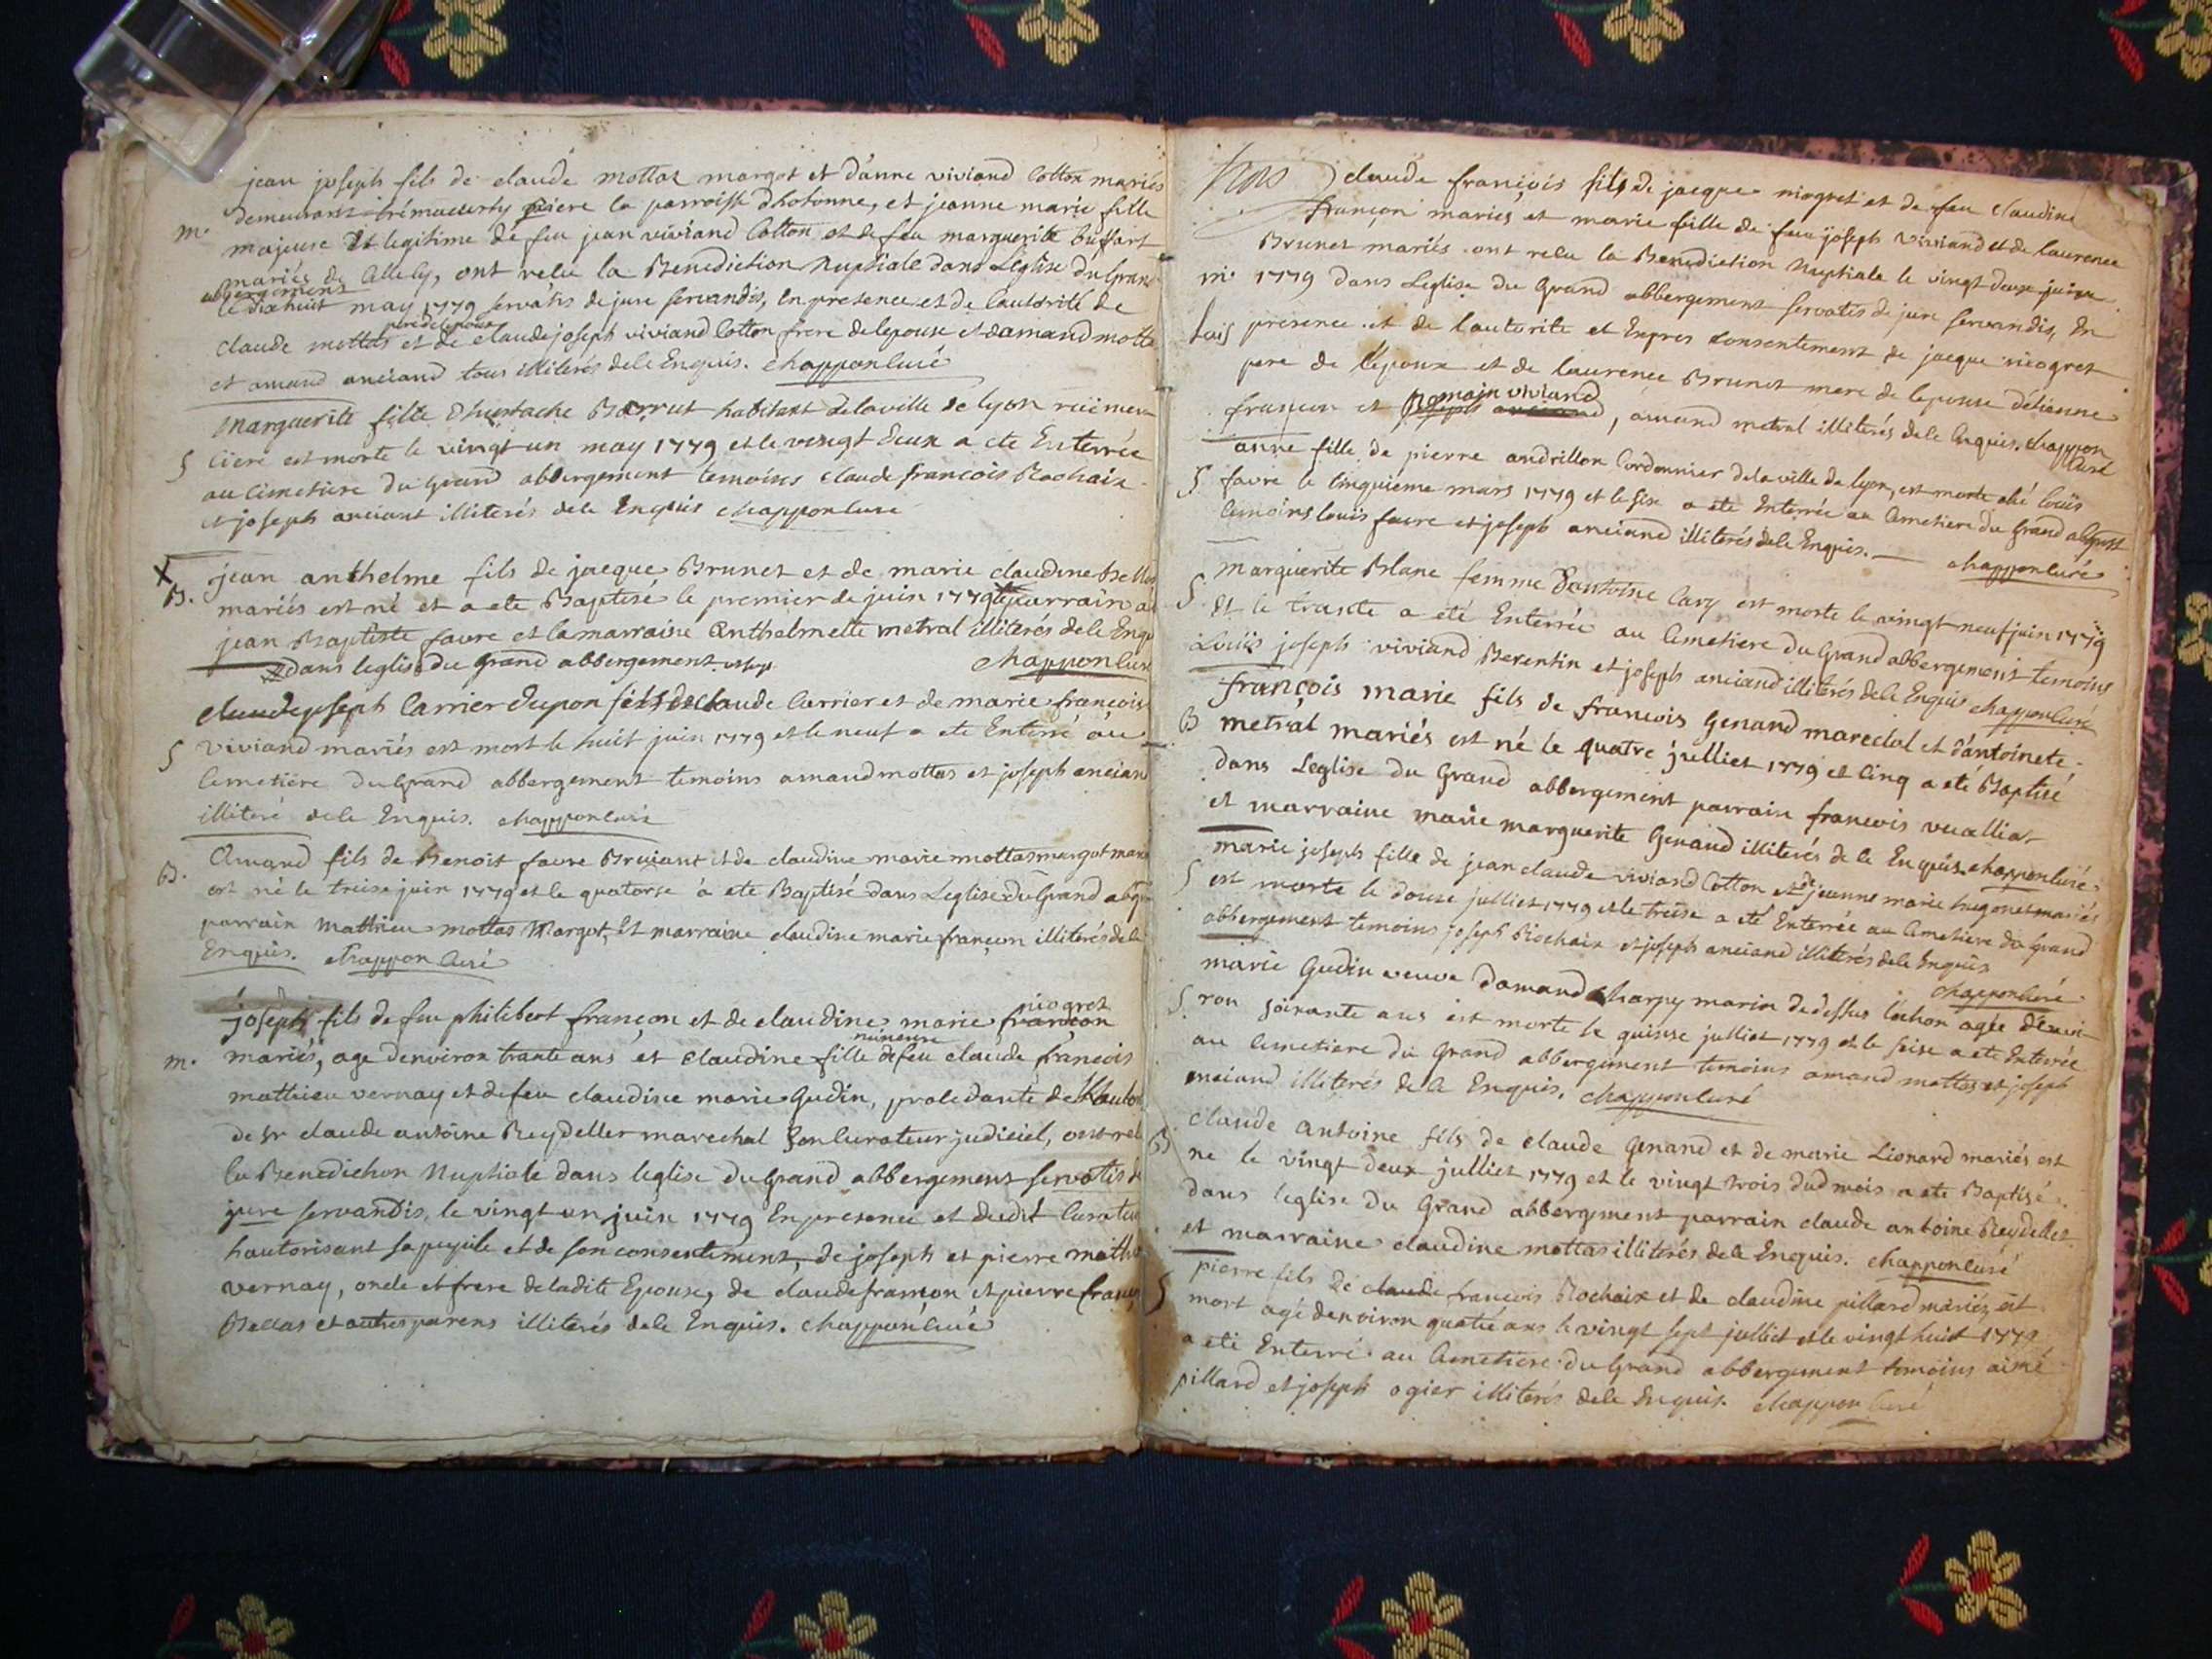 jean joseph fils de claude mottas margot et d'anne viviand Cotton mariés
m. demeurants riere la parroisse dhotonne, et jeanne marie fille
majeure et legitime de feu jean viviand Cotton et de feu marguerite buffart
mariés de ont recu la Benediction Nuptiale dans L'eglise du Grand
abbergement
le dix huit may 1779 servatis de jure servandis, en presence et de lautorité de
pere de lepoux
claude mottas et de claude joseph viviand Cotton frere de lepouse et damand motta
et amand anciand tous illiterés de le Enquis. chappon curé
Marguerite fille dhustache Barrut habitant de la ville de lyon
S ciere est morte le vingt un may 1779 et le vingt deux a ete Enterrée
au cimetiere du Grand abbergement temoins claude francois Rochaix
et joseph anciant illiterés de le Enquis chappon cure
X
B. jean anthelme fils de jacque Brunet et de marie claudine
mariés est né et a ete Baptisé le premier de juin 1779 le parrain a
jean Baptiste favre et la marraine Anthelmette metral illiterés de le Enqu
dans leglise du Grand abbergement chappon cur
claude joseph Carrier Dupon fils de claude Carrier et de marie francois
S viviand mariés est mort le huit juin 1779 et le neuf a ete Enterré au
Cemetiere du Grand abbergement temoins amand mottas et joseph ancian
illiteré de le Enquis. chappon curé
B. Amand fils de Benoit favre Bruiant et de claudine marie mottas margot mari
est né le treise juin 1779 et le quatorse a ete Baptisé dans L'eglise du Grand abrg
parrain Mathieu mottas Margot, et marraine claudine marie françon illiterés de le
Enquis. chappon curé
niogret
joseph fils de feu philibert françon et de claudine marie françon
mineure
m. mariés, age denviron trante ans et claudine fille de feu claude francois
mathieu vernay et de feu claudine marie Gudin, procedante de l'auto
de Sr claude antoine Reydellet marechal son Curateur judiciel, ont re
cu Benediction Nuptiale dans leglise du Grand abbergement servatis de
jure servandis, le vingt un juin 1779 En presence et dudit Curateur
hautorisant sa pupile et de son consentement, de joseph et pierre mathi
vernay, oncle et frere de ladite Epouse, de claude françon et pierre franç
Bellas et autres parens illiterés de le Enquis. chappon curé
claude françois fils de jacque niogret et de feu claudine
françon mariés et marie fille de feu joseph viviand et de laurence
Brunet mariés ont recu la Benediction Nuptiale le vingt deux juin
m. 1779 dans L'eglise du Grand abbergement servatis de jure servandis, En
presence et de l'autorité et Expres consentement de jacque niogret
pere de l'epoux et de laurence Brunet mere de lepouse d'etienne
Romain viviand
françon et joseph anciand, amand metral illiterés de le Enquis. chappon
curé
anne fille de pierre andrillon Cordonnier de la ville de lyon, est morte ché louis
S favre le cinquieme mars 1779 et le six a ete Enterrée au Cemetiere du Grand
temoins louis favre et joseph anciand illiterés de le Enquis. chappon curé
Marguerite Blanc femme d'antoine Cary est morte le vingt neuf juin 1779
S Et le trante a eté Enterrée au Cemetiere du Grand abbergement temoins
Louis joseph viviand Berentin et joseph anciand illiterés de le Enquis chappon curé
françois marie fils de francois Genand marechal et d'antoinete
B metral mariés est né le quatre julliet 1779 et cinq a eté Baptisé
dans L'eglise du Grand abbergement parrain francois vuaillat
et marraine marie marguerite Genand illiterés de le Enquis. chappon curé
marie joseph fille de jean claude viviand Cotton et de jeanne marie hugonet mariés
S est morte le douse julliet 1779 et le treise a eté Enterrée au Cemetiere du Grand
abbergement temoins joseph Rochaix et joseph anciand illiterés de le Enquis
chappon curé
marie Gudin veuve damand charpy marin de dessus lechon agée d'envi-
S ron soixante ans est morte le quinse julliet 1779 et le seise a ete Enterrée
au Cemetiere du Grand abbergement temoins amand mottas et joseph
anciand illiterés de le Enquis. chappon curé
B claude antoine fils de claude Genand et de marie Lionard mariés est
né le vingt deux julliet 1779 et le vingt trois dud mois a ete Baptisé
dans leglise du Grand abbergement parrain claude antoine Reydellet
et marraine claudine mottas illiterés de le Enquis. chappon curé
pierre fils de claude francois Rochaix et de claudine pillard mariés est
S mort agé denviron quatre ans le vingt sept julliet et le vingt huit 1779
a eté Enterré au Cemetiere du Grand abbergement temoins aimé
pillard et joseph ogier illiterés de le Enquis. chappon curé